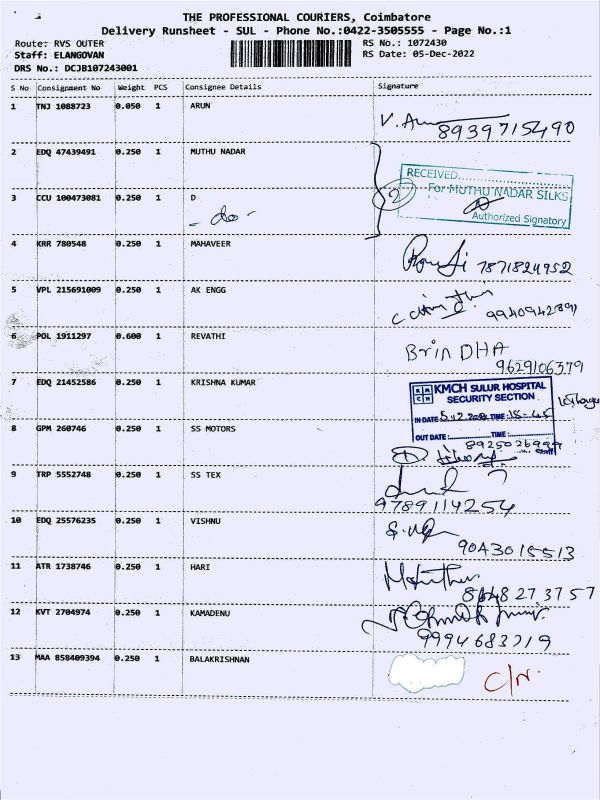 THE PROFESSIONAL COURIERS, Coimbatore
Delivery Runsheet - SUL - Phone No.:0422-3505555 - Page No.:1
Route: RVS OUTER
RS No.: 1072430
Staff: ELANGOVAN
RS Date: 05-Dec-2022
DRS No.: DCJB107243001
S No Consignment No Weight PCS Consignee Details Signature
1 TNJ 1088723 0.050 1 ARUN
8939715490
2 EDQ 47439491 0.250 1 MUTHU NADAR
RECEIVED
For MUTHU NADAR SILKS
Authorized Signatory
2
3 CCU 100473081 0.250 1 D
- do -
4 KRR 780548 0.250 1 MAHAVEER
7871824952
5 VPL 215691009 0.250 1 AK ENGG
6 POL 1911297 0.600 1 REVATHI
Brin DHA
9629106379
7 EDQ 21452586 0.250 1 KRISHNA KUMAR
KMCH
KMCH SULUR HOSPITAL
SECURITY SECTION
IN DATE 5.12.2022 TIME: 15-45
OUT DATE: TIME:
8 GPM 260746 0.250 1 SS MOTORS
9 TRP 5552748 0.250 1 SS TEX
9789114254
10 EDQ 25576235 0.250 1 VISHNU
9043015513
11 ATR 1738746 0.250 1 HARI
8648273757
12 KVT 2704974 0.250 1 KAMADENU
9994683219
13 MAA 858409394 0.250 1 BALAKRISHNAN
C/N.